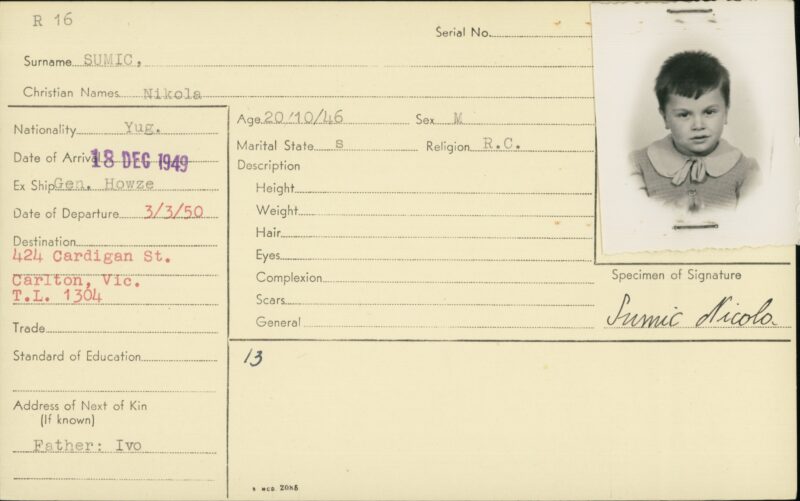 R 16
Serial No.
Surname SUMIC,
Christian Names Nikola
Nationality Yug.
Date of Arrival 18 DEC 1949
Ex Ship Gen. Howze
Date of Departure 3/3/50
Destination
424 Cardigan St.
Carlton, Vic.
T.L. 1304
Trade
Standard of Education
Address of Next of Kin
(If known)
Father: Ivo
Age 20/10/46 Sex M
Marital State s Religion R.C.
Description
Height
Weight
Hair
Eyes
Complexion
Scars
General
Specimen of Signature
Sumic Nicola
13